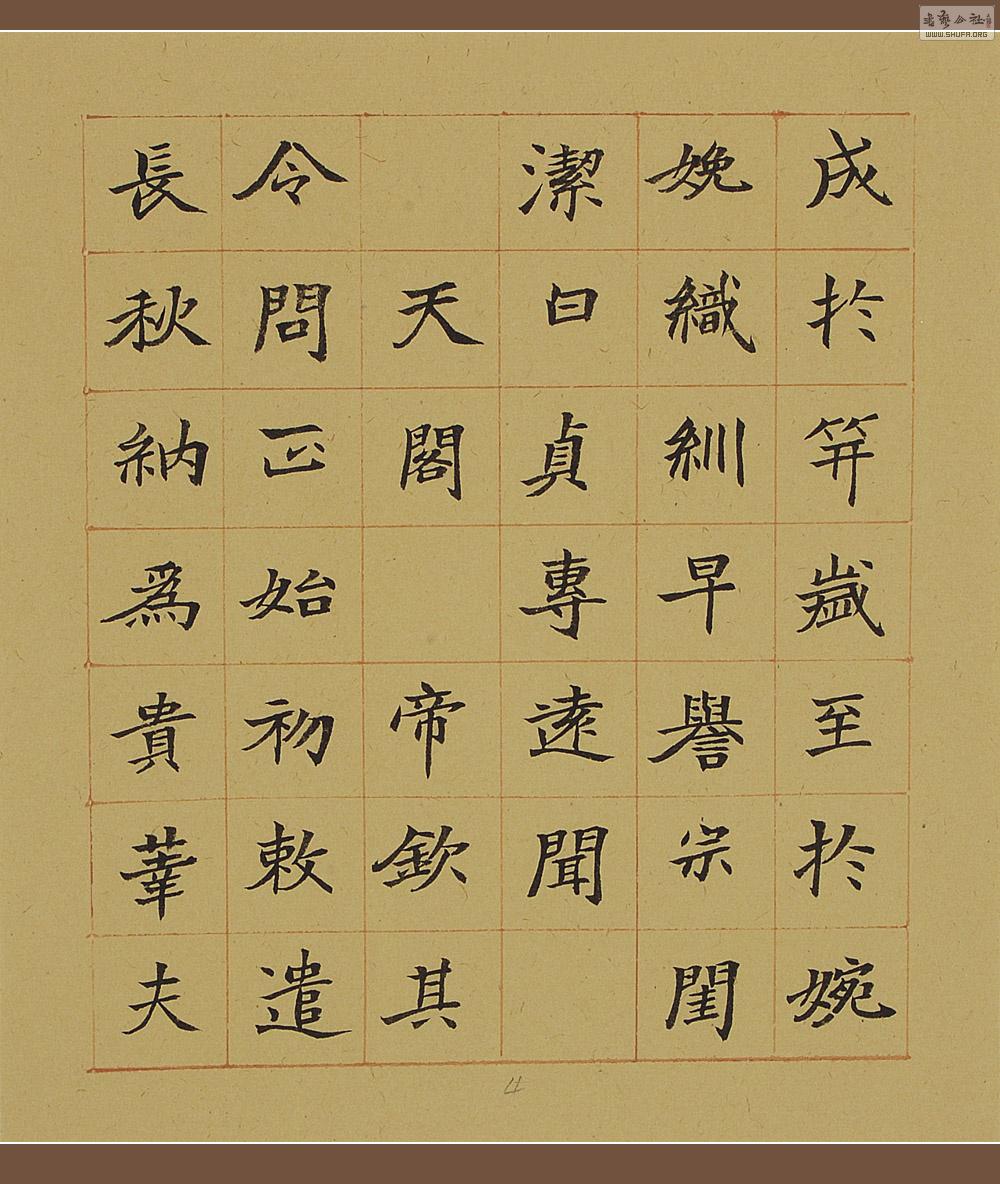 成於笄歲至於婉
娩織紃早譽宗閨
潔白貞專遠聞
天閣帝欽其
令問正始初敕遣
長秋納為貴華夫
4
WWW.SHUFA.ORG